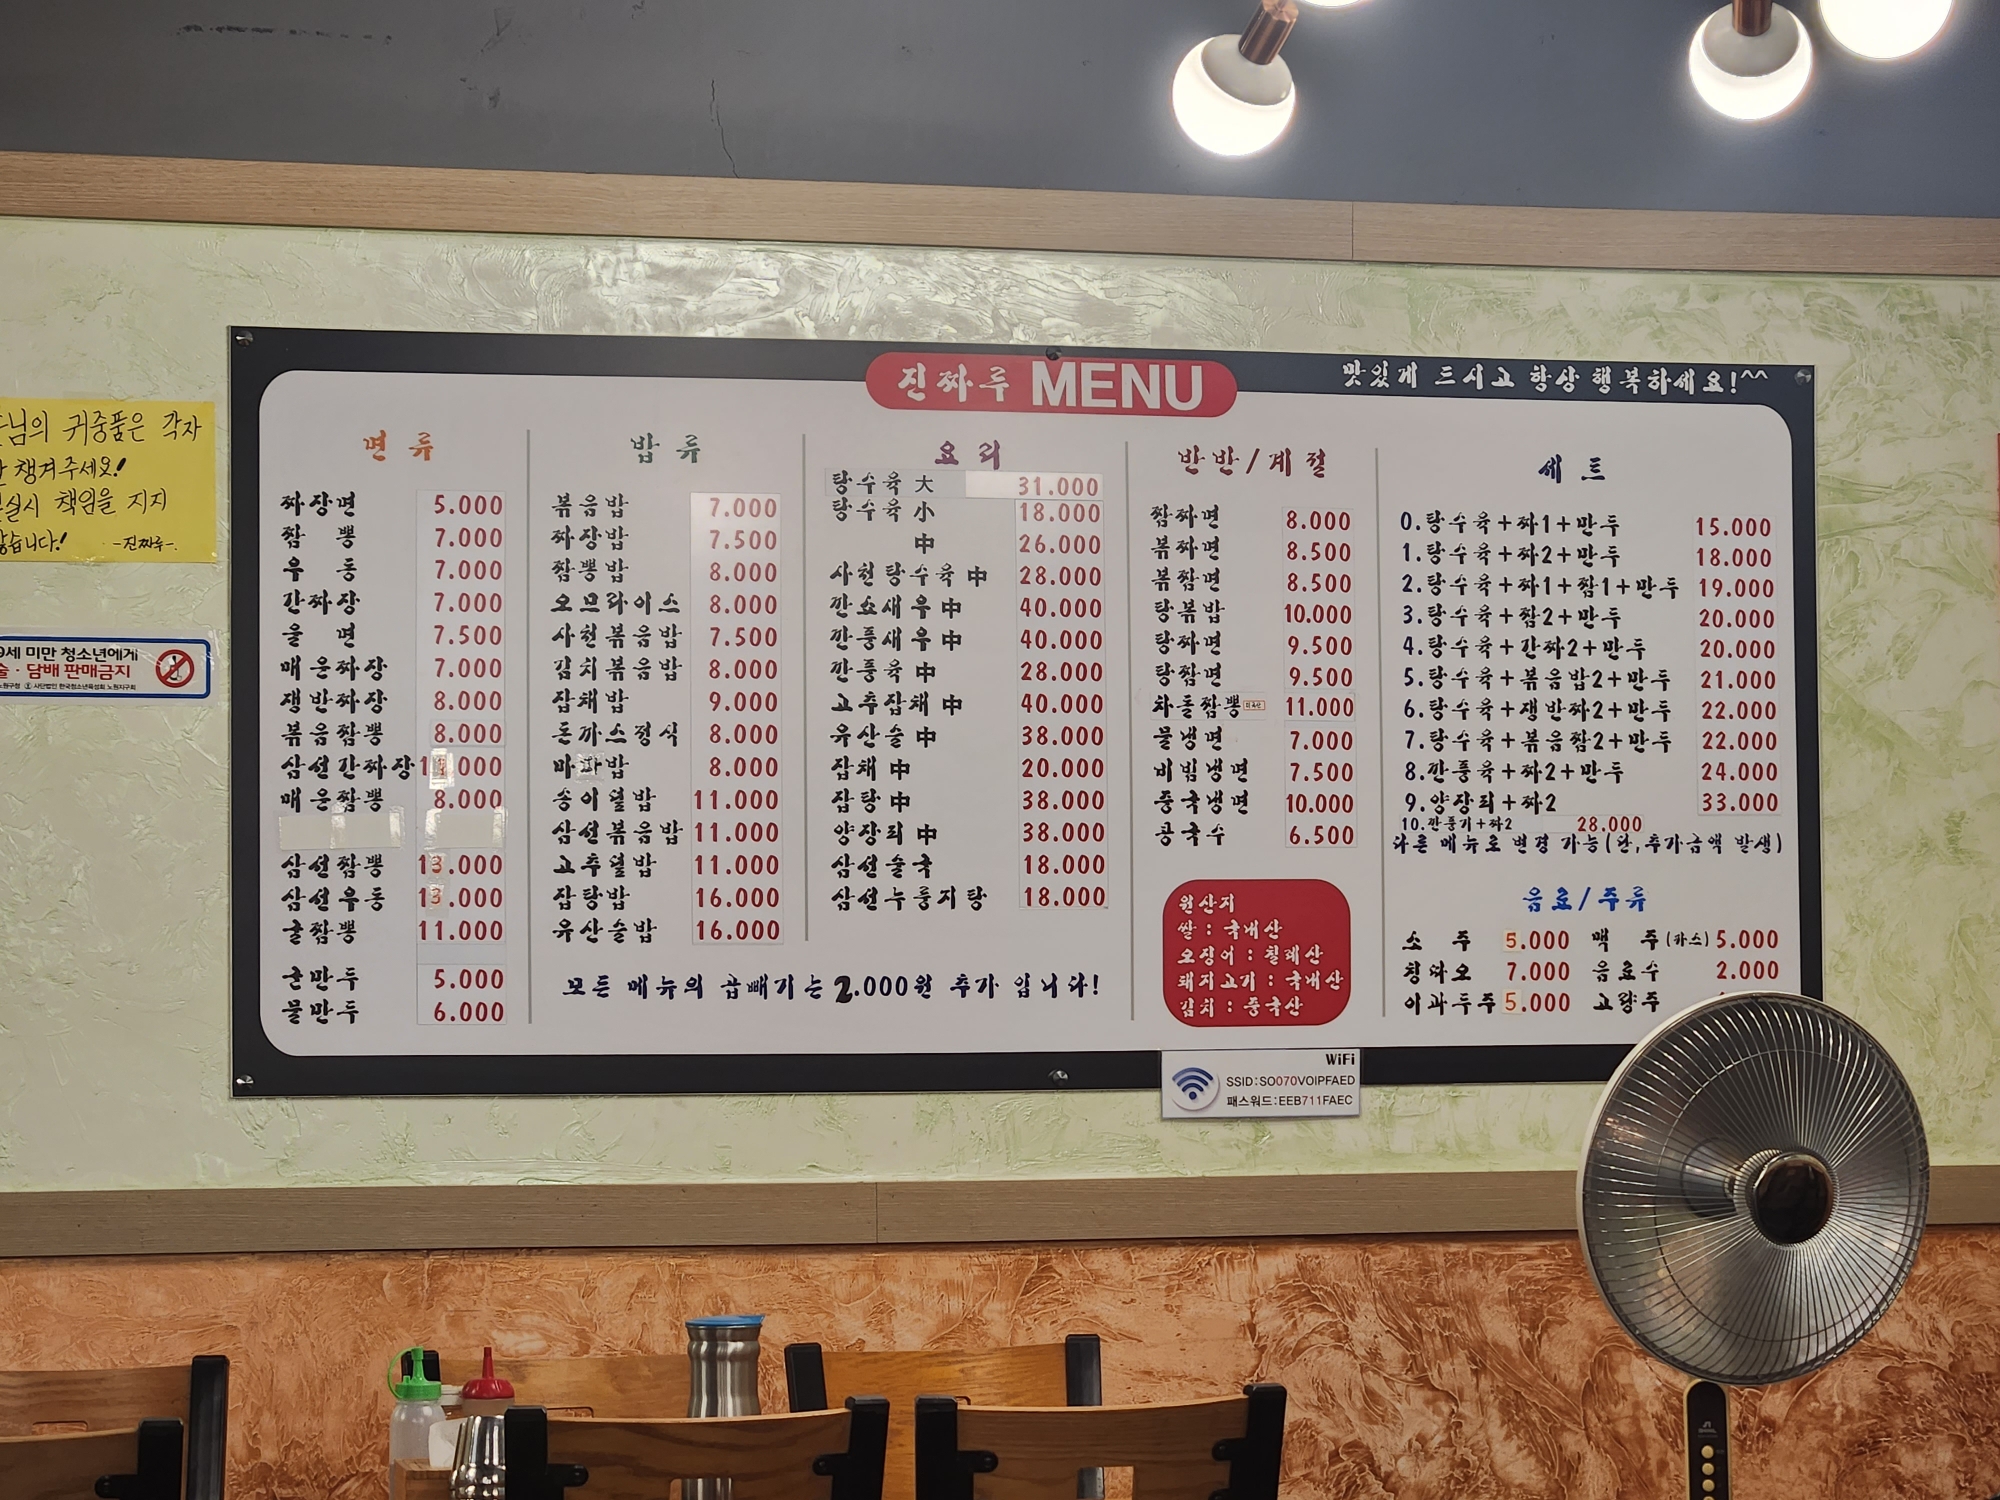 진짜루 MENU
맛있게 드시고 항상 행복하세요!^^
면류
짜장면 5.000
짬 뽕 7.000
우 동 7.000
간짜장 7.000
울 면 7.500
매운짜장 7.000
쟁반짜장 8.000
볶음짬뽕 8.000
삼선간짜장 .000
매운짬뽕 8.000
삼선짬뽕 13.000
삼선우동 13.000
굴짬뽕 11.000
군만두 5.000
물만두 6.000
밥류
볶음밥 7.000
짜장밥 7.500
짬뽕밥 8.000
오므라이스 8.000
사천볶음밥 7.500
김치볶음밥 8.000
잡채밥 9.000
돈까스정식 8.000
마파밥 8.000
송이덮밥 11.000
삼선볶음밥 11.000
고추덮밥 11.000
잡탕밥 16.000
유산슬밥 16.000
요리
탕수육 大 31.000
탕수육 小 18.000
中 26.000
사천탕수육 中 28.000
깐쇼새우 中 40.000
깐풍새우 中 40.000
깐풍육 中 28.000
고추잡채 中 40.000
유산슬 中 38.000
잡채 中 20.000
잡탕 中 38.000
양장피 中 38.000
삼선술국 18.000
삼선누룽지탕 18.000
모든 메뉴의 곱빼기는 2.000원 추가 입니다!
반반/계절
짬짜면 8.000
볶짜면 8.500
볶짬면 8.500
탕볶밥 10.000
탕짜면 9.500
탕짬면 9.500
차돌짬뽕 11.000
물냉면 7.000
비빔냉면 7.500
중국냉면 10.000
콩국수 6.500
원산지
쌀 : 국내산
오징어 : 칠레산
돼지고기 : 국내산
김치 : 중국산
세트
0.탕수육+짜1+만두 15.000
1.탕수육+짜2+만두 18.000
2.탕수육+짜1+짬1+만두 19.000
3.탕수육+짬2+만두 20.000
4.탕수육+간짜2+만두 20.000
5.탕수육+볶음밥2+만두 21.000
6.탕수육+쟁반짜2+만두 22.000
7.탕수육+볶음짬2+만두 22.000
8.깐풍육+짜2+만두 24.000
9.양장피+짜2 33.000
10.깐풍기+짜2 28.000
다른 메뉴로 변경 가능(단,추가금액 발생)
음료/주류
소 주 5.000 맥 주(카스) 5.000
칭다오 7.000 음료수 2.000
이과두주 5.000 고량주
WiFi
SSID:SO070VOIPFAED
패스워드:EEB711FAEC
님의 귀중품은 각자
챙겨주세요!
실시 책임을 지지
않습니다! -진짜루-
9세 미만 청소년에게
술·담배 판매금지
노원구청 사단법인 한국청소년육성회 노원지구회